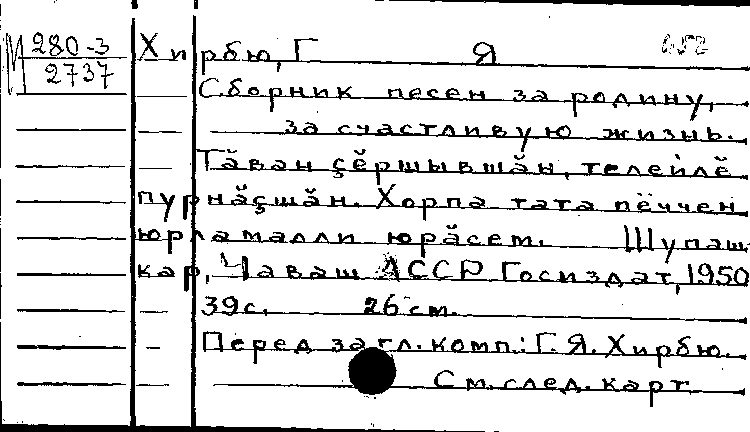 М 280-3
2737
Хирбю, Г Я
Сборник песен за родину,
за счастливую жизнь.
Тăван çĕршывшăн, телейлĕ
пурнăçшăн. Хорпа тата пĕччен
юрламалли юрăсем. Шупаш
кар, Чăваш АССР Госиздат, 1950
39с. 26 см.
Перед загл. комп.: Г. Я. Хирбю.
См. след. карт.